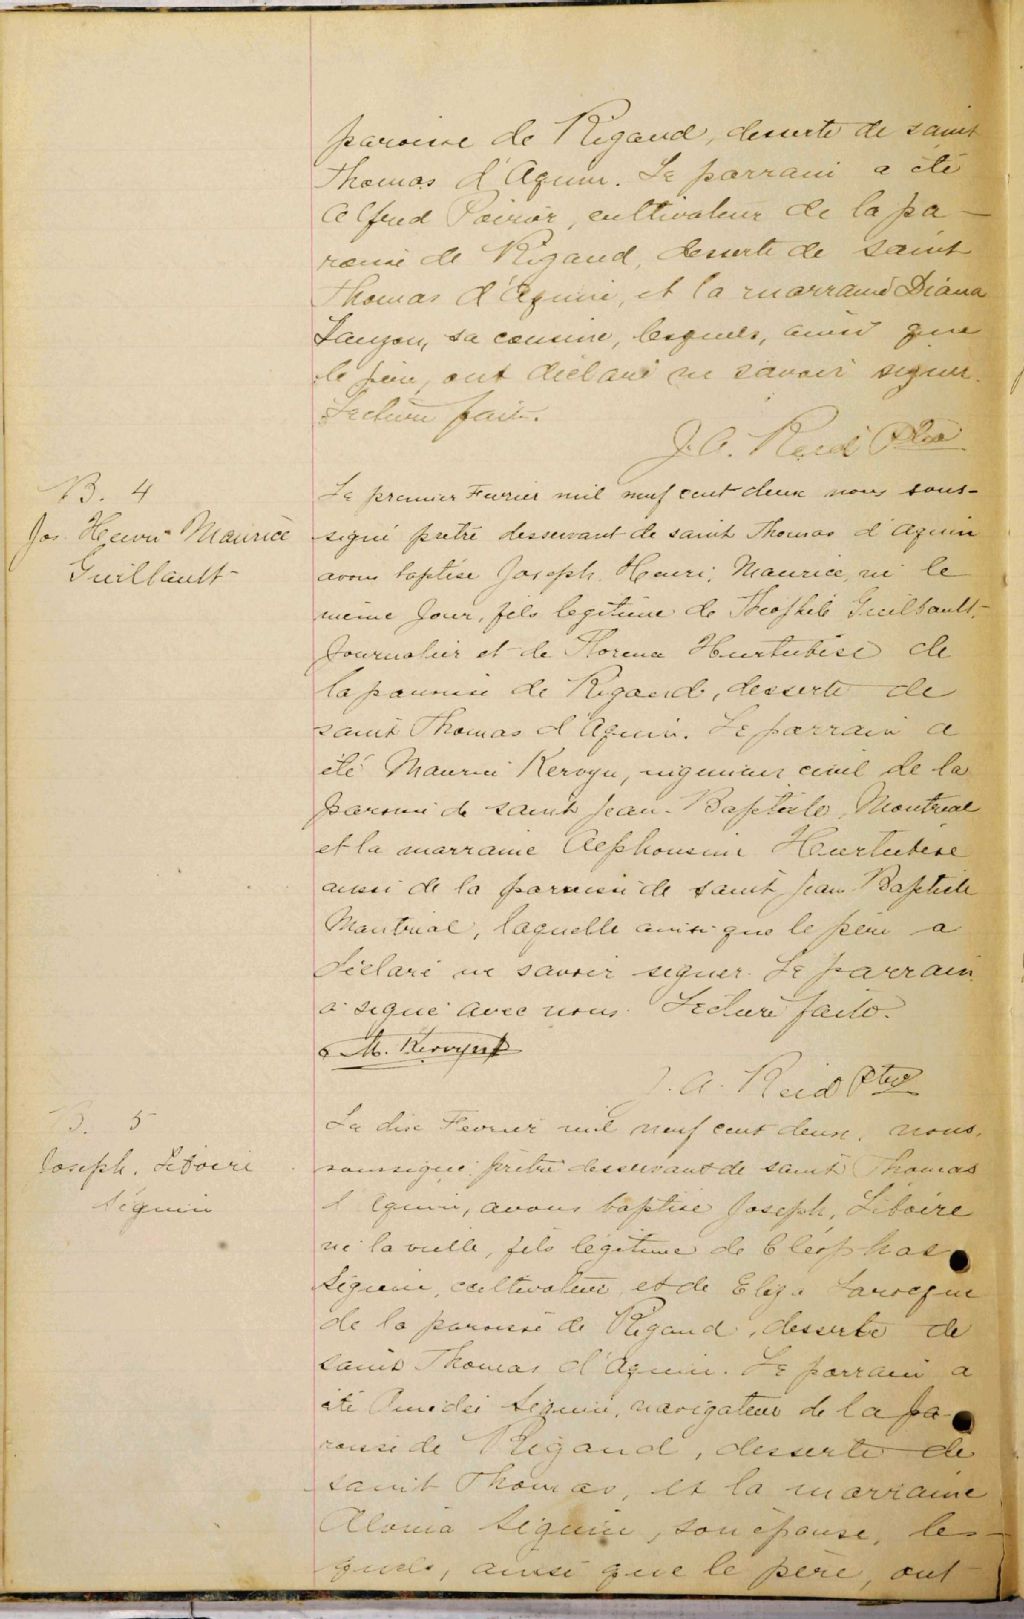 paroisse de Rigaud, desserte de saint
Thomas d'Aquin. Le parrain a été
Alfred Poirier, cultivateur de la pa-
roisse de Rigaud, desserte de saint
Thomas d'Aquin, et la marraine Diana
Lauzon, sa cousine, lesquels, ainsi que
le père, ont déclaré ne savoir signer.
Lecture faite.
J. A. Reid Ptre
B. 4
Jos. Henri Maurice
Guilbault
Le premier Fevrier mil neuf cent deux nous sous-
signé prêtre desservant de saint Thomas d'Aquin
avons baptisé Joseph, Henri, Maurice, né le
même jour, fils légitime de Théophile Guilbault,
Journalier et de Florena Hurtubise de
la paroisse de Rigaud, desserte de
saint Thomas d'Aquin. Le parrain a
été Maurice Kervyn, ingenieur civil de la
paroisse de saint Jean-Baptiste, Montreal
et la marraine Alphonsine Hurtubise
aussi de la paroisse de saint Jean Baptiste
Montréal, laquelle ainsi que le père a
déclaré ne savoir signer. Le parrain
a signé avec nous. Lecture faite.
M. Kervyn
J. A. Reid Ptre
B. 5
Joseph, Liboire
Séguin
Le dix Fevrier mil neuf cent deux, nous,
soussigné, prêtre desservant de saint Thomas
d'Aquin, avons baptisé Joseph, Liboire
né la veille, fils légitime de Cléophas
Séguin, cultivateur, et de Eliza Larocque
de la paroisse de Rigaud, desserte de
saint Thomas d'Aquin. Le parrain a
été Amédée Séguin, navigateur de la pa-
roisse de Rigaud, desserte de
saint Thomas, et la marraine
Séguin, son épouse, les-
quels, ainsi que le père, ont